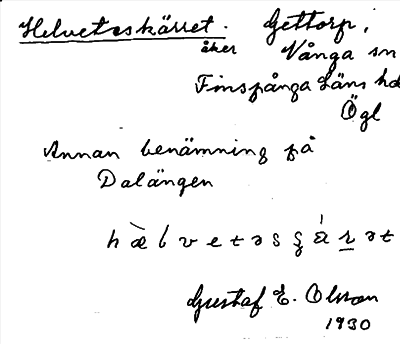 Helvetesskärret. Gettorp,
åker Vånga sn
Finspånga Läns hd
Ögl
Annan benämning på
Dalängen
h æ̀ l v e t ə s ʂ á r ə t
Gustaf E. Olsson
1930